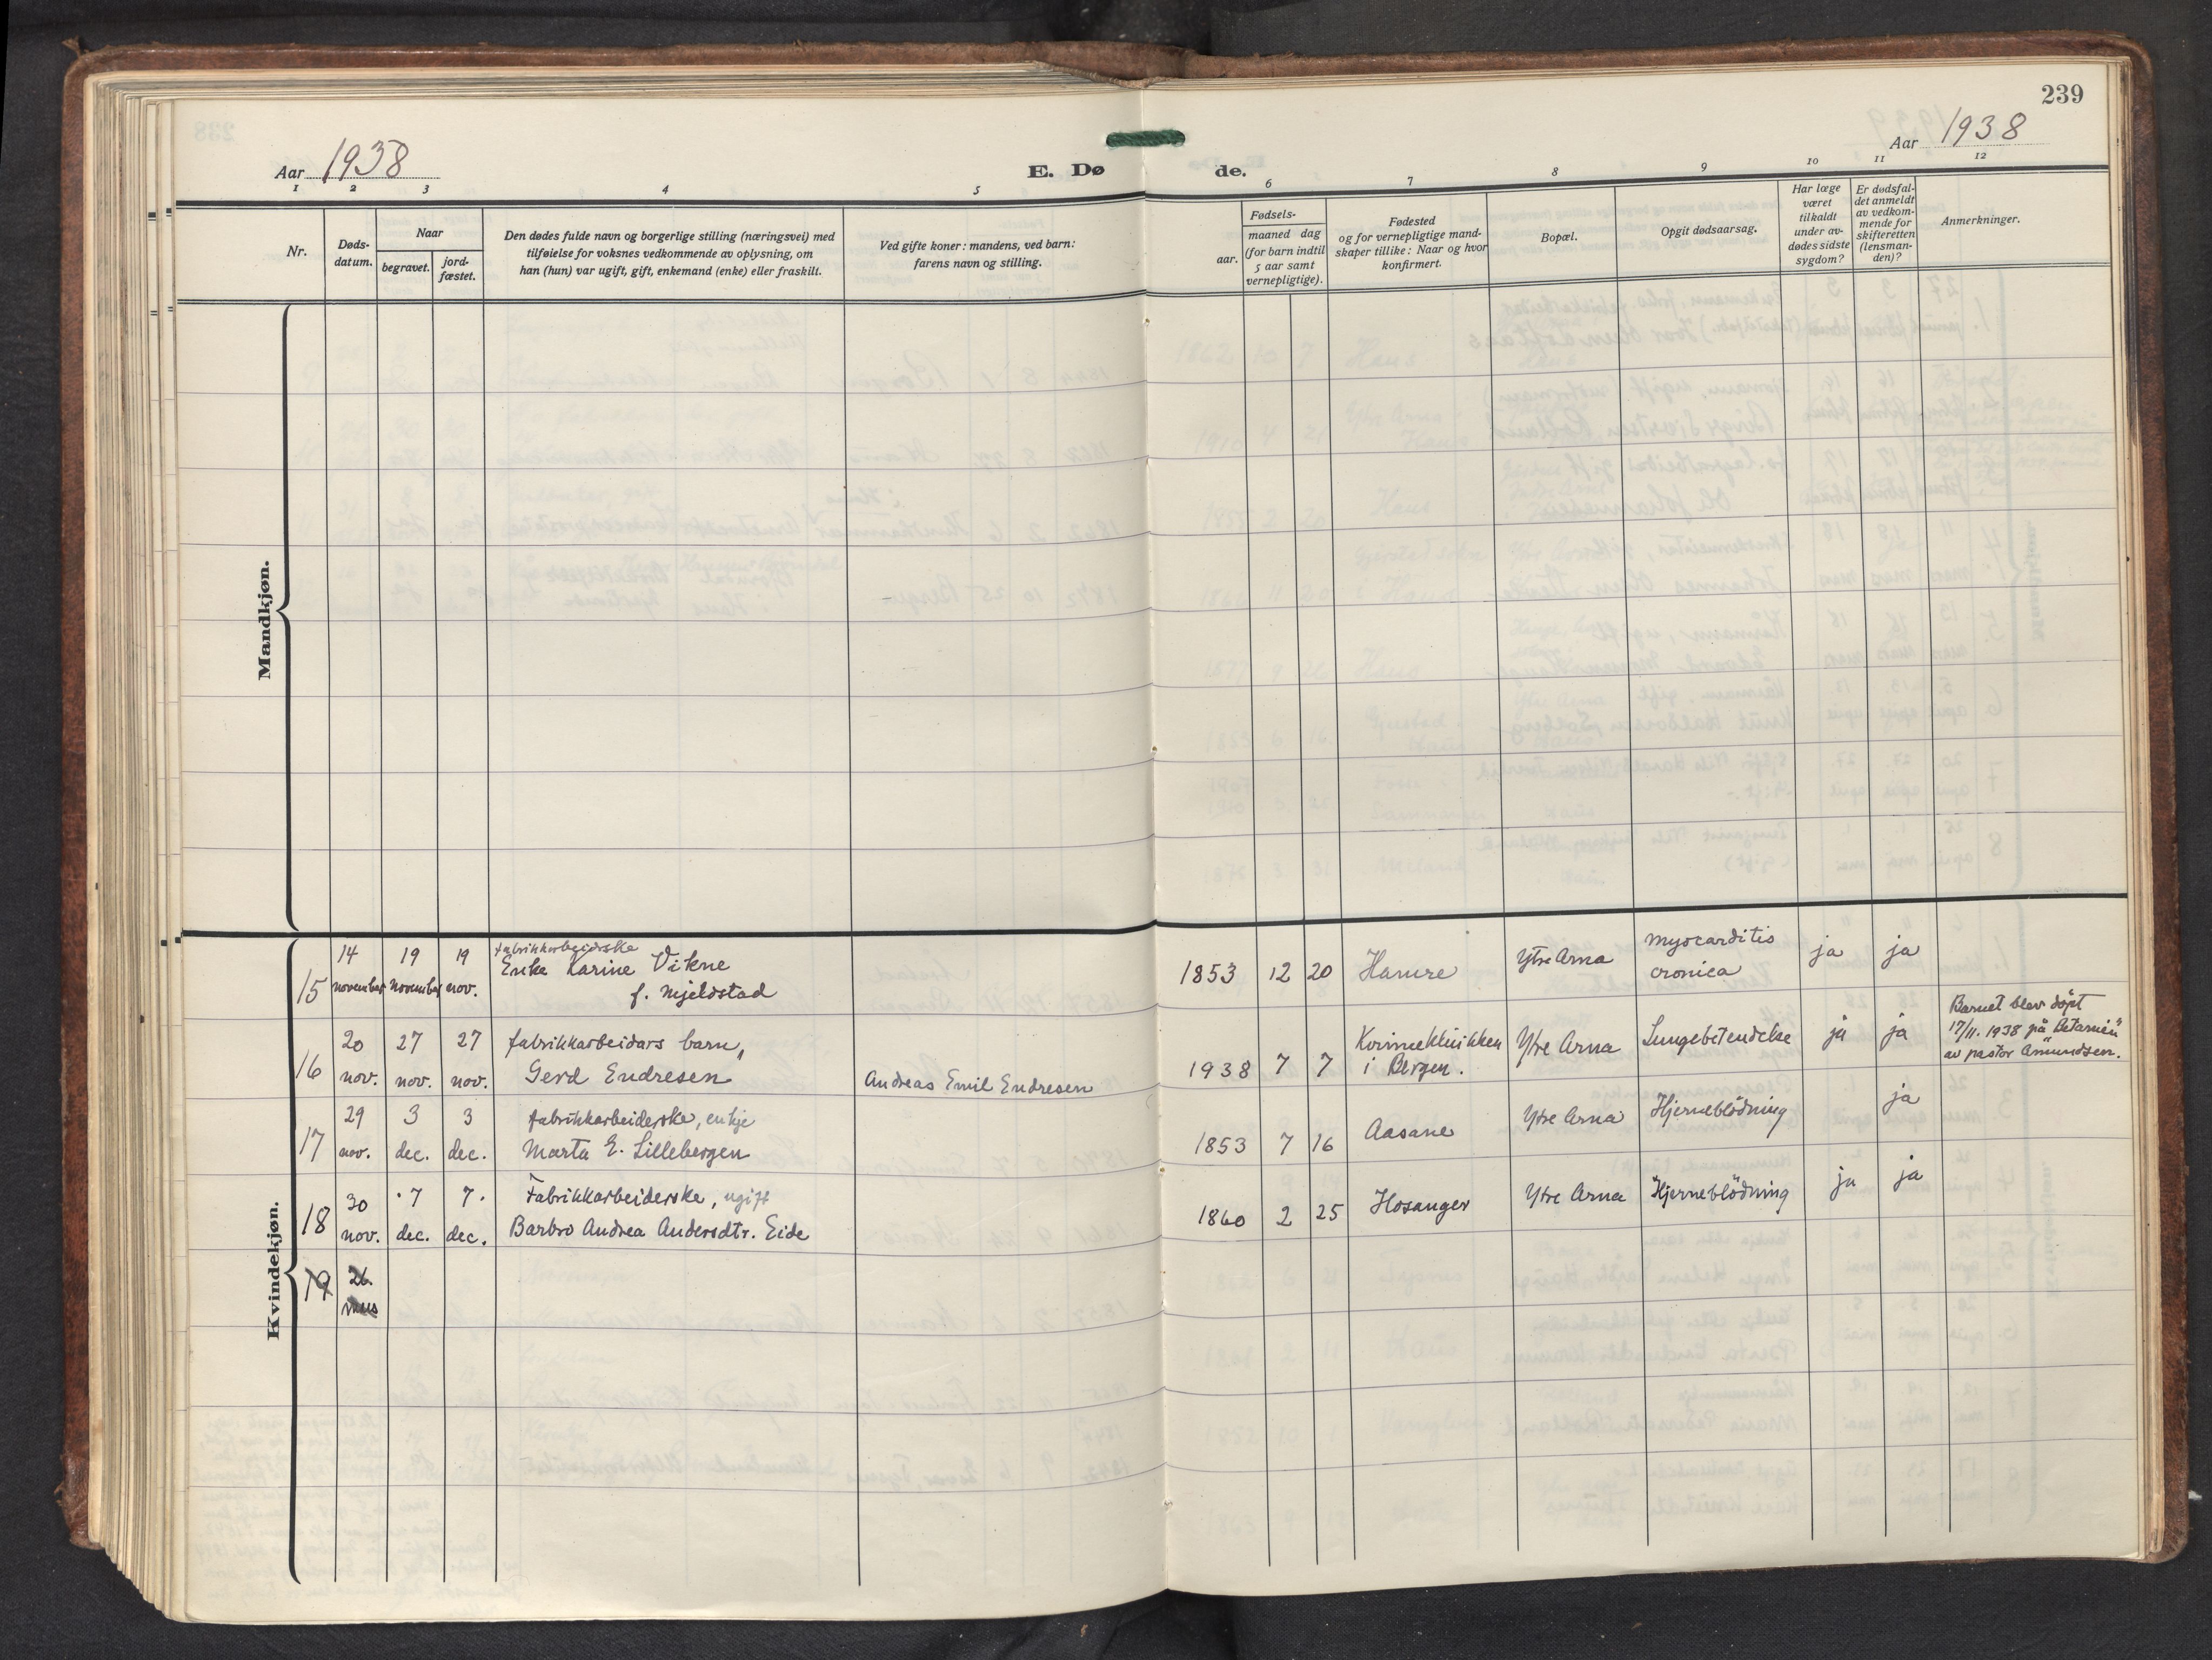 239
Aar 1938
E. Døde.
Aar 1938
1 2 3 4 5 6 7 8 9 10 11 12
Nr.
Døds-
datum.
Naar
begravet.
jord-
fæstet.
Den dødes fulde navn og borgerlige stilling (næringsvei) med
tilføielse for voksnes vedkommende av oplysning, om
han (hun) var ugift, gift, enkemand (enke) eller fraskilt.
Ved gifte koner: mandens, ved barn:
farens navn og stilling.
Fødsels-
aar.
maaned dag
(for barn indtil
5 aar samt
vernepligtige).
Fødested
og for vernepligtige mand-
skaper tillike: Naar og hvor
konfirmert.
Bopæl.
Opgit dødsaarsag.
Har læge
været
tilkaldt
under av-
dødes sidste
sygdom?
Er dødsfal-
det anmeldt
av vedkom-
mende for
skifteretten
(lensman-
den)?
Anmerkninger.
Mandkjøn.
Kvindekjøn.
15
14
november
19
November
19
nov.
Fabrikkarbeiderske
Enke Karine Vikne
f. Mjeldstad
1853 12 20
Hamre
Ytre Arna
myocarditis
cronica
ja
ja
16
20
nov.
27
nov.
27
nov.
fabrikkarbeidars barn,
Gerd Endresen
Andreas Emil Endresen
1938 7 7
Kvinneklinikken
i Bergen.
Ytre Arna
Lungebetendelse
ja
ja
Barnet blev döpt
17/11. 1938 på "Betanien"
av pastor Amundsen.
17
29
nov.
3
dec.
3
dec.
fabrikkarbeiderske, enkje
Marta E. Lillebergen
1853 7 16
Aasane
Ytre Arna
Hjerneblödning
ja
18
30
nov.
7
dec.
7.
dec.
Fabrikkarbeiderske, ugift
Barbro Andrea Andersdtr. Eide
1860 2 25
Hosanger
Ytre Arna
Hjerneblödning
ja
ja
19
26.